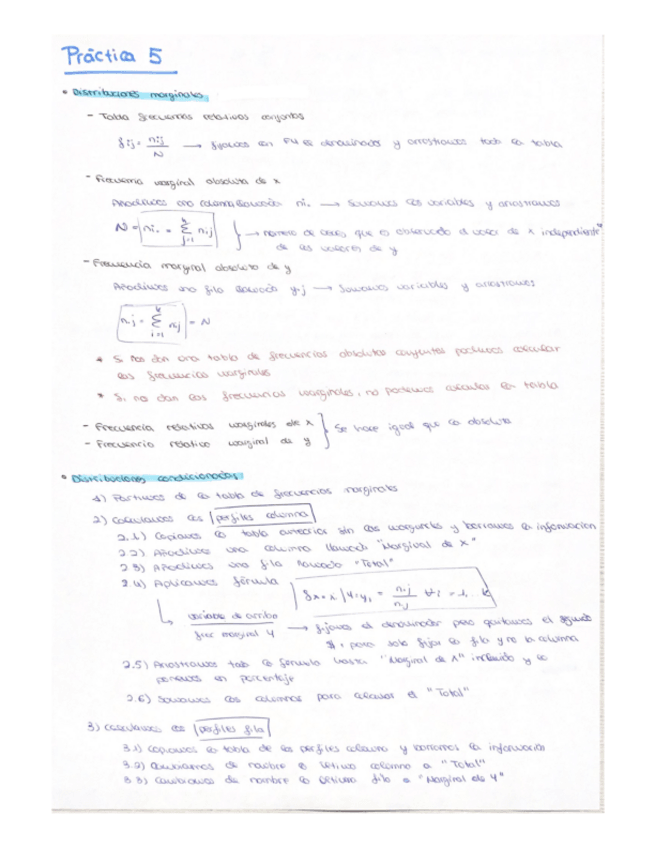 Práctica 5
• Distribuciones marginales
- Tabla frecuencias relativas conjuntas
fij = nij / N → fijamos en F4 el denominador y arrastramos toda la tabla
- Frecuencia marginal absoluta de x
Añadimos una columna llamada ni. → Sumamos las variables y arrastramos
N = ni. = Σ j=1 nij } → número de veces que se observado el valor de x independiente
de los valores de y
- Frecuencia marginal absoluta de y
Añadimos una fila llamada y.j → Sumamos variables y arrastramos
n.j = Σ i=1 k nij = N
* Si nos dan una tabla de frecuencias absolutas conjuntas podemos calcular
las frecuencias marginales
* Si nos dan las frecuencias marginales, no podemos calcular la tabla
- Frecuencia relativas marginales de x
- Frecuencia relativa marginal de y } Se hace igual que la absoluta
• Distribuciones condicionadas
1) Partimos de la tabla de frecuencias marginales
2) Calculamos los perfiles columna
2.1) Copiamos la tabla anterior sin las marginales y borramos la información
2.2) Añadimos una columna llamada "Marginal de x"
2.3) Añadimos una fila llamada "Total"
2.4) Aplicamos fórmula
variable de arriba / frec marginal y → fijamos el denominador pero quitamos el segundo
$, para solo fijar la fila y no la columna
2.5) Arrastramos toda la fórmula hasta "Marginal de x" incluido y lo
ponemos en porcentaje
2.6) Sumamos las columnas para calcular el "Total"
3) Calculamos los perfiles fila
3.1) Copiamos la tabla de los perfiles columna y borramos la información
3.2) Cambiamos de nombre la última columna a "Total"
3.3) Cambiamos de nombre la última fila a "Marginal de y"